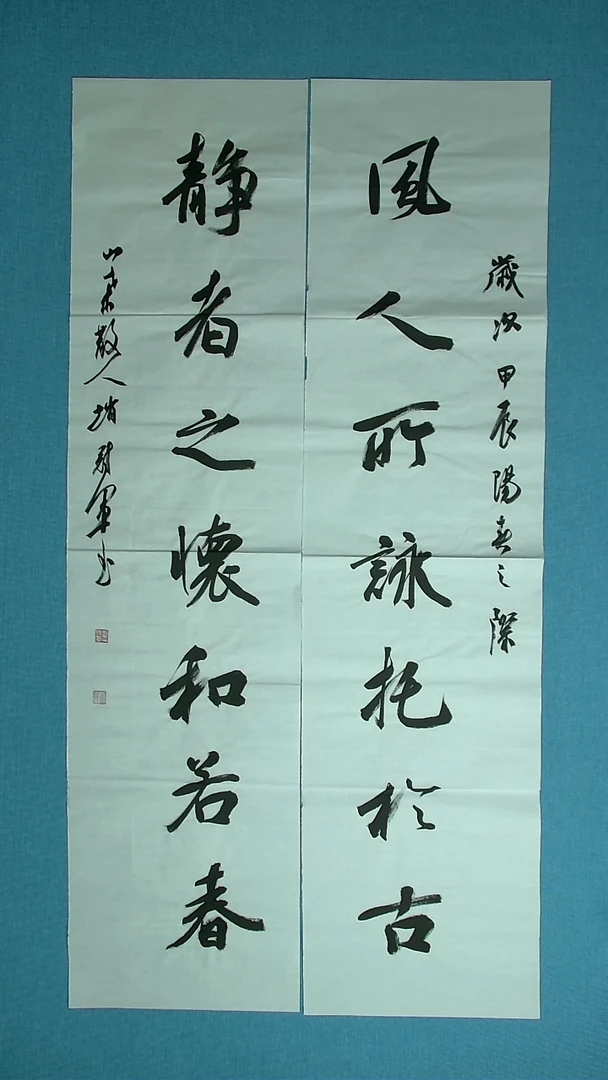 歲次甲辰陽春之際
風人所詠托於古
静者之懷和若春
山散人軍书